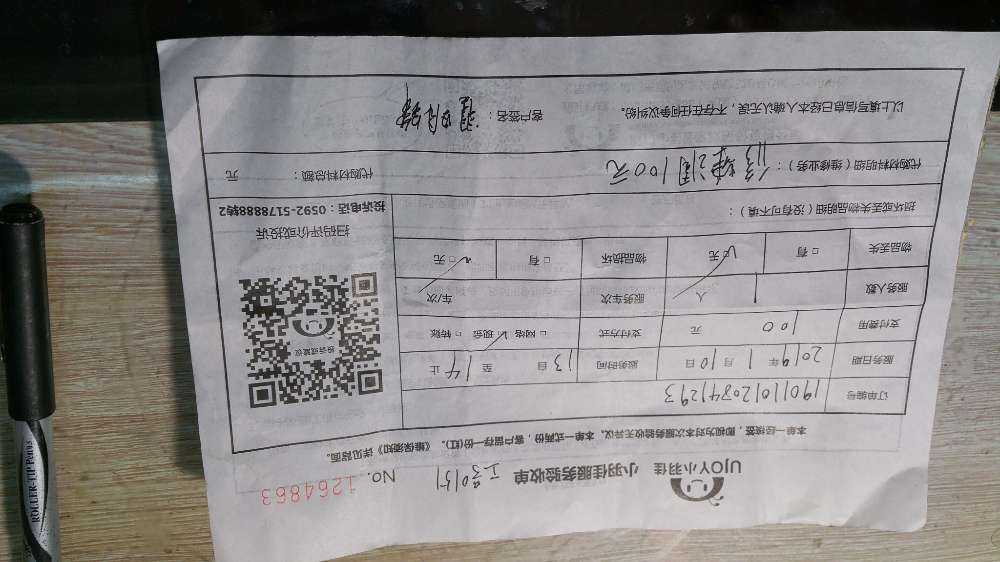 UJOY小羽佳 小羽佳服务验收单 工号 0151 NO. 1264863
本单一经续签，即视为对本次服务验收无异议。本单一式两份，客户留存一份(红)。《维保须知》详见背面。
订单编号 1901101208741293
服务日期 2019年 1 月 10 日 服务时间 13 自 至 14 止
支付费用 100 元 支付方式 □ 网络 ☑ 现金 □ 转账
服务人数 1 人 服务车次 车/次
物品丢失 □ 有 ☑ 无 物品损坏 □ 有 ☑ 无
损坏或丢失物品明细（没有可不填）：
投诉建议
扫码评价或投诉
投诉电话：0592-5178888转2
代购材料明细（维修业务）： 100元 代购材料总额： 元
以上填写信息已经本人确认无误，不存在任何争议纠纷。 客户签名：
ROLLER-TIP Penns